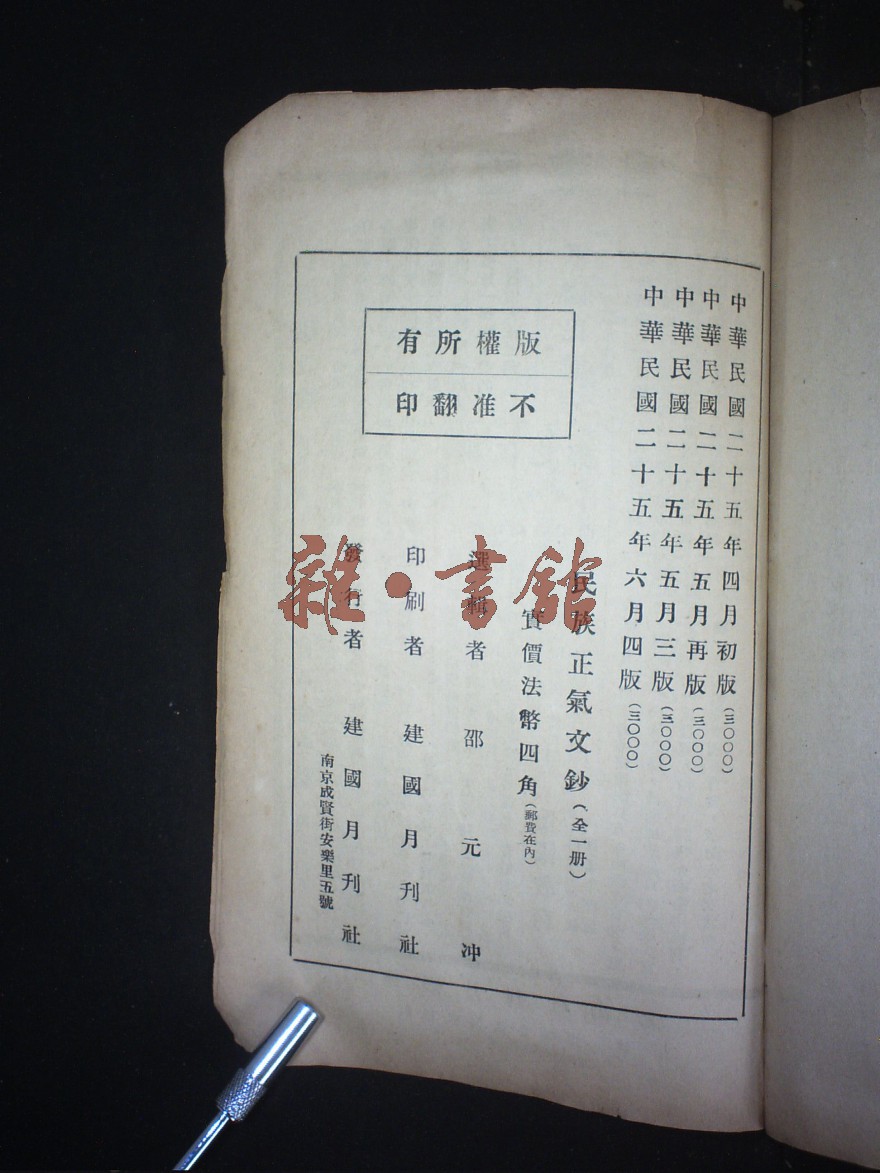 中華民國二十五年四月初版（三〇〇〇）
中華民國二十五年五月再版（三〇〇〇）
中華民國二十五年五月三版（三〇〇〇）
中華民國二十五年六月四版（三〇〇〇）
民族正氣文鈔（全一册）
實價法幣四角（郵費在內）
選輯者 邵元冲
印刷者 建國月刊社
發行者 建國月刊社
南京成賢街安樂里五號
版權所有
不准翻印
雜·書館